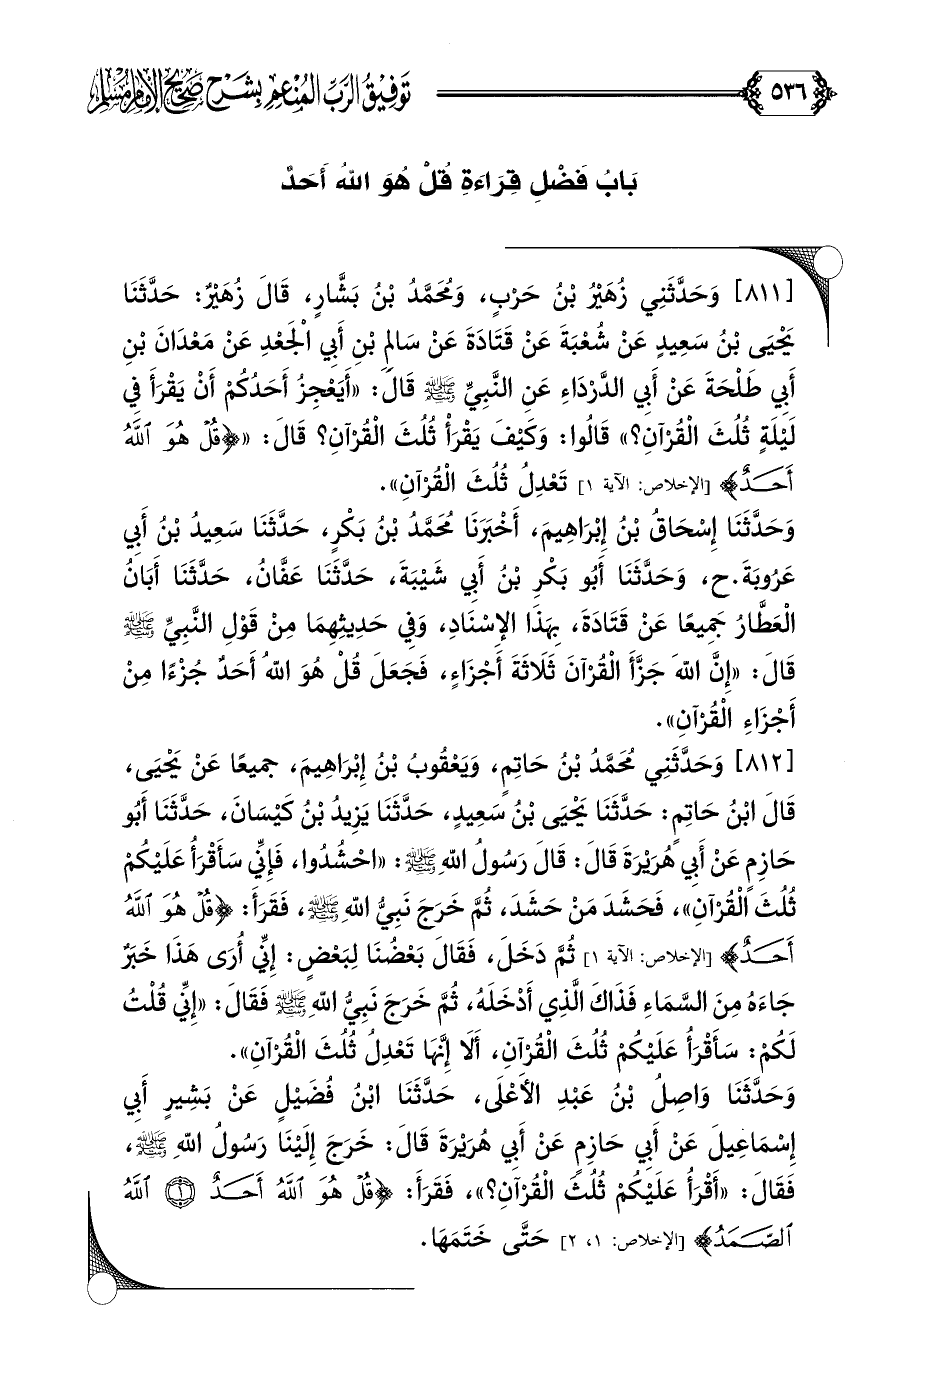 ٥٣٦ توفيقُ الرَّبِّ المُنْعِم بِشَرْحِ صَحِيحِ الإِمَامِ مُسْلِم
بَابُ فَضْلِ قِرَاءَةِ قُلْ هُوَ اللهُ أَحَدٌ
[٨١١] وَحَدَّثَنِي زُهَيْرُ بْنُ حَرْبٍ، وَمُحَمَّدُ بْنُ بَشَّارٍ، قَالَ زُهَيْرٌ: حَدَّثَنَا
يَحْيَى بْنُ سَعِيدٍ عَنْ شُعْبَةَ عَنْ قَتَادَةَ عَنْ سَالِمِ بْنِ أَبِي الْجَعْدِ عَنْ مَعْدَانَ بْنِ
أَبِي طَلْحَةَ عَنْ أَبِي الدَّرْدَاءِ عَنِ النَّبِيِّ ﷺ قَالَ: «أَيَعْجِزُ أَحَدُكُمْ أَنْ يَقْرَأَ فِي
لَيْلَةٍ ثُلُثَ الْقُرْآنِ؟» قَالُوا: وَكَيْفَ يَقْرَأْ ثُلُثَ الْقُرْآنِ؟ قَالَ: «﴿قُلْ هُوَ ٱللَّهُ
أَحَدٌ﴾ [الإخلاص: الآية ١] تَعْدِلُ ثُلُثَ الْقُرْآنِ».
وَحَدَّثَنَا إِسْحَاقُ بْنُ إِبْرَاهِيمَ، أَخْبَرَنَا مُحَمَّدُ بْنُ بَكْرٍ، حَدَّثَنَا سَعِيدُ بْنُ أَبِي
عَرُوبَةَ.ح، وَحَدَّثَنَا أَبُو بَكْرِ بْنُ أَبِي شَيْبَةَ، حَدَّثَنَا عَفَّانُ، حَدَّثَنَا أَبَانُ
الْعَطَّارُ جَمِيعًا عَنْ قَتَادَةَ، بِهَذَا الإِسْنَادِ، وَفِي حَدِيثِهِمَا مِنْ قَوْلِ النَّبِيِّ ﷺ
قَالَ: «إِنَّ اللهَ جَزَّأَ الْقُرْآنَ ثَلَاثَةَ أَجْزَاءٍ، فَجَعَلَ قُلْ هُوَ اللهُ أَحَدٌ جُزْءًا مِنْ
أَجْزَاءِ الْقُرْآنِ».
[٨١٢] وَحَدَّثَنِي مُحَمَّدُ بْنُ حَاتِمٍ، وَيَعْقُوبُ بْنُ إِبْرَاهِيمَ، جَمِيعًا عَنْ يَحْيَى،
قَالَ ابْنُ حَاتِمٍ: حَدَّثَنَا يَحْيَى بْنُ سَعِيدٍ، حَدَّثَنَا يَزِيدُ بْنُ كَيْسَانَ، حَدَّثَنَا أَبُو
حَازِمٍ عَنْ أَبِي هُرَيْرَةَ قَالَ: قَالَ رَسُولُ اللهِ ﷺ: «احْشُدُوا، فَإِنِّي سَأَقْرَأُ عَلَيْكُمْ
ثُلُثَ الْقُرْآنِ»، فَحَشَدَ مَنْ حَشَدَ، ثُمَّ خَرَجَ نَبِيُّ اللهِ ﷺ، فَقَرَأَ: ﴿قُلْ هُوَ ٱللَّهُ
أَحَدٌ﴾ [الإخلاص: الآية ١] ثُمَّ دَخَلَ، فَقَالَ بَعْضُنَا لِبَعْضٍ: إِنِّي أُرَى هَذَا خَبَرٌ
جَاءَهُ مِنَ السَّمَاءِ فَذَاكَ الَّذِي أَدْخَلَهُ، ثُمَّ خَرَجَ نَبِيُّ اللهِ ﷺ فَقَالَ: «إِنِّي قُلْتُ
لَكُمْ: سَأَقْرَأُ عَلَيْكُمْ ثُلُثَ الْقُرْآنِ، أَلَا إِنَّهَا تَعْدِلُ ثُلُثَ الْقُرْآنِ».
وَحَدَّثَنَا وَاصِلُ بْنُ عَبْدِ الأَعْلَى، حَدَّثَنَا ابْنُ فُضَيْلٍ عَنْ بَشِيرٍ أَبِي
إِسْمَاعِيلَ عَنْ أَبِي حَازِمٍ عَنْ أَبِي هُرَيْرَةَ قَالَ: خَرَجَ إِلَيْنَا رَسُولُ اللهِ ﷺ،
فَقَالَ: «أَقْرَأُ عَلَيْكُمْ ثُلُثَ الْقُرْآنِ؟»، فَقَرَأَ: ﴿قُلْ هُوَ ٱللَّهُ أَحَدٌ ۝١ ٱللَّهُ
ٱلصَّمَدُ﴾ [الإخلاص: ١، ٢] حَتَّى خَتَمَهَا.